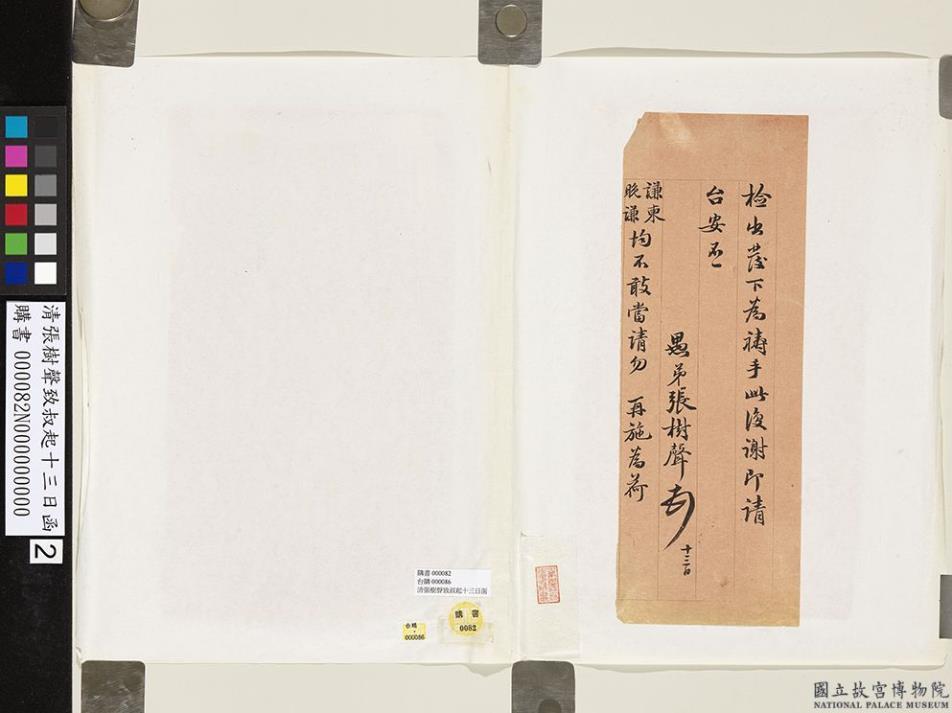 檢出蓬下為禱手此復謝即請
台安不一
愚弟張樹聲
十三日
謙柬
晚謙
均不敢當請勿 再施為荷
清張樹聲致叔起十三日函
購書 000082N000000000
2
購書 000082
台購 000086
清張樹聲致叔起十三日函
購書
0082
台購
000086
國立故宮博物院
NATIONAL PALACE MUSEUM